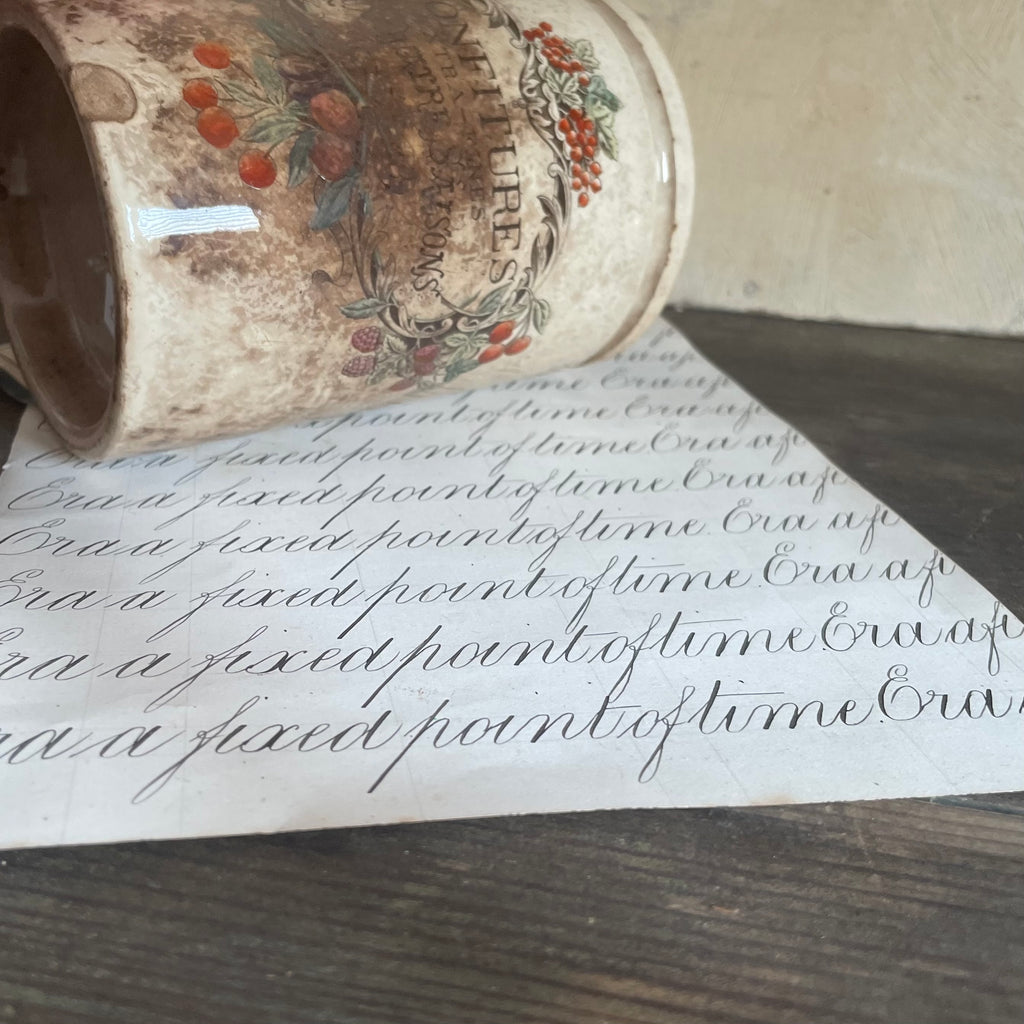 CONFITURES
SAISONS
Era af
time Era afi
point of time Era afi
Era a fixed point of time Era afi
Era a fixed point of time. Era afi
Era a fixed point of time. Era afi
Era a fixed point of time. Era afi
Era a fixed point of time Era afi
ra a fixed point of time. Era